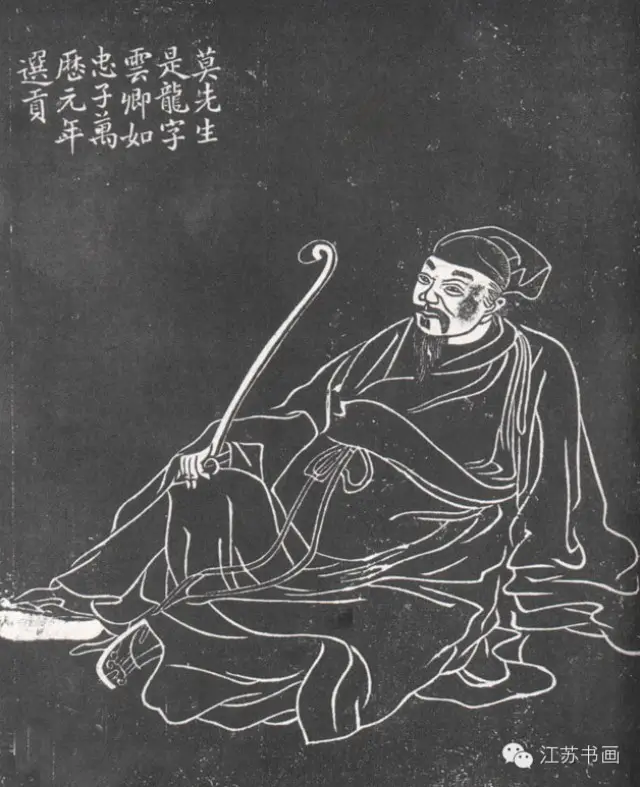 莫先生
是龍字
雲卿如
忠子萬
歷元年
選貢
江苏书画